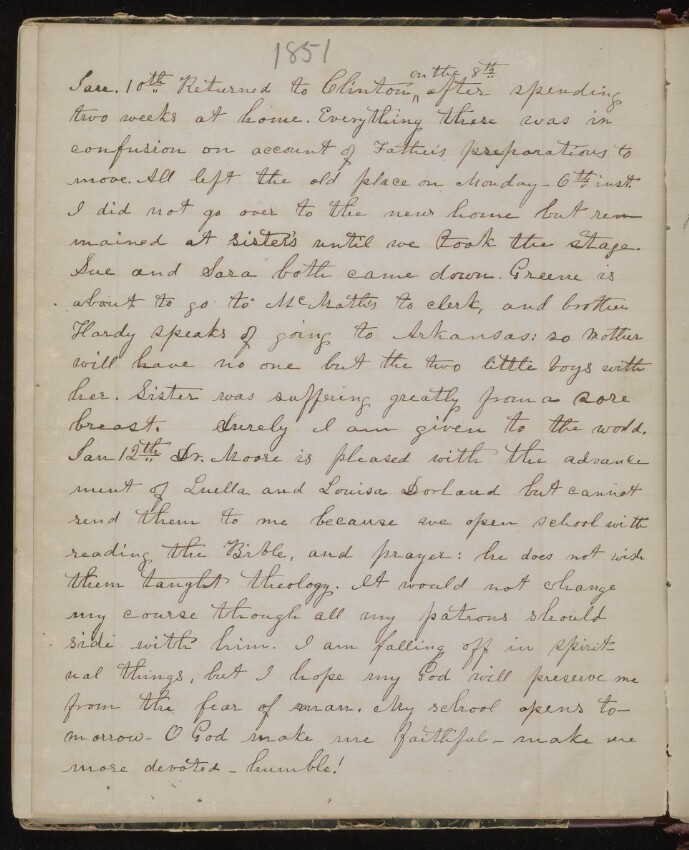 1851
Jan. 10th Returned to Clinton, on the 8th after spending
two weeks at home. Everything there was in
confusion on account of Father's preparations to
move. All left the old place on Monday - 6th inst.
I did not go over to the new home but re-
mained at sister's until we took the stage.
Sue and Sara both came down. Greene is
about to go to McMath's to clerk, and brother
Hardy speaks of going to Arkansas: so Mother
will have no one but the two little boys with
her. Sister was suffering greatly from a sore
breast. Surely I am given to the world.
Jan 12th Dr. Moore is pleased with the advance
ment of Luella and Louisa Dorland but cannot
send them to me because we open school with
reading the Bible, and prayer: he does not wish
them taught theology. It would not change
my course though all my patrons should
side with him. I am falling off in spirit-
ual things, but I hope my God will preserve me
from the fear of man. My school opens to-
morrow - O God make me faithful - make me
more devoted - humble!